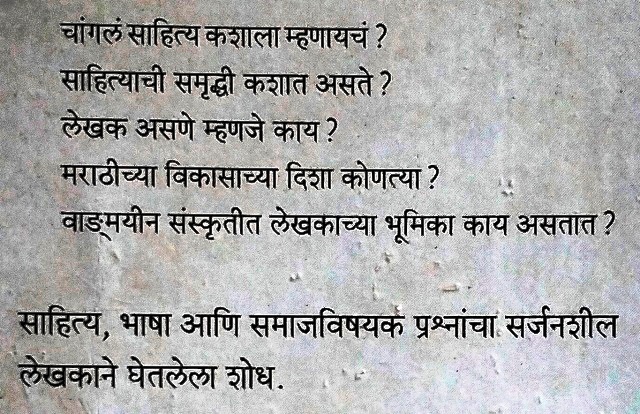 चांगलं साहित्य कशाला म्हणायचं ?
साहित्याची समृद्धी कशात असते ?
लेखक असणे म्हणजे काय ?
मराठीच्या विकासाच्या दिशा कोणत्या ?
वाङ्‌मयीन संस्कृतीत लेखकाच्या भूमिका काय असतात ?
साहित्य, भाषा आणि समाजविषयक प्रश्नांचा सर्जनशील
लेखकाने घेतलेला शोध.